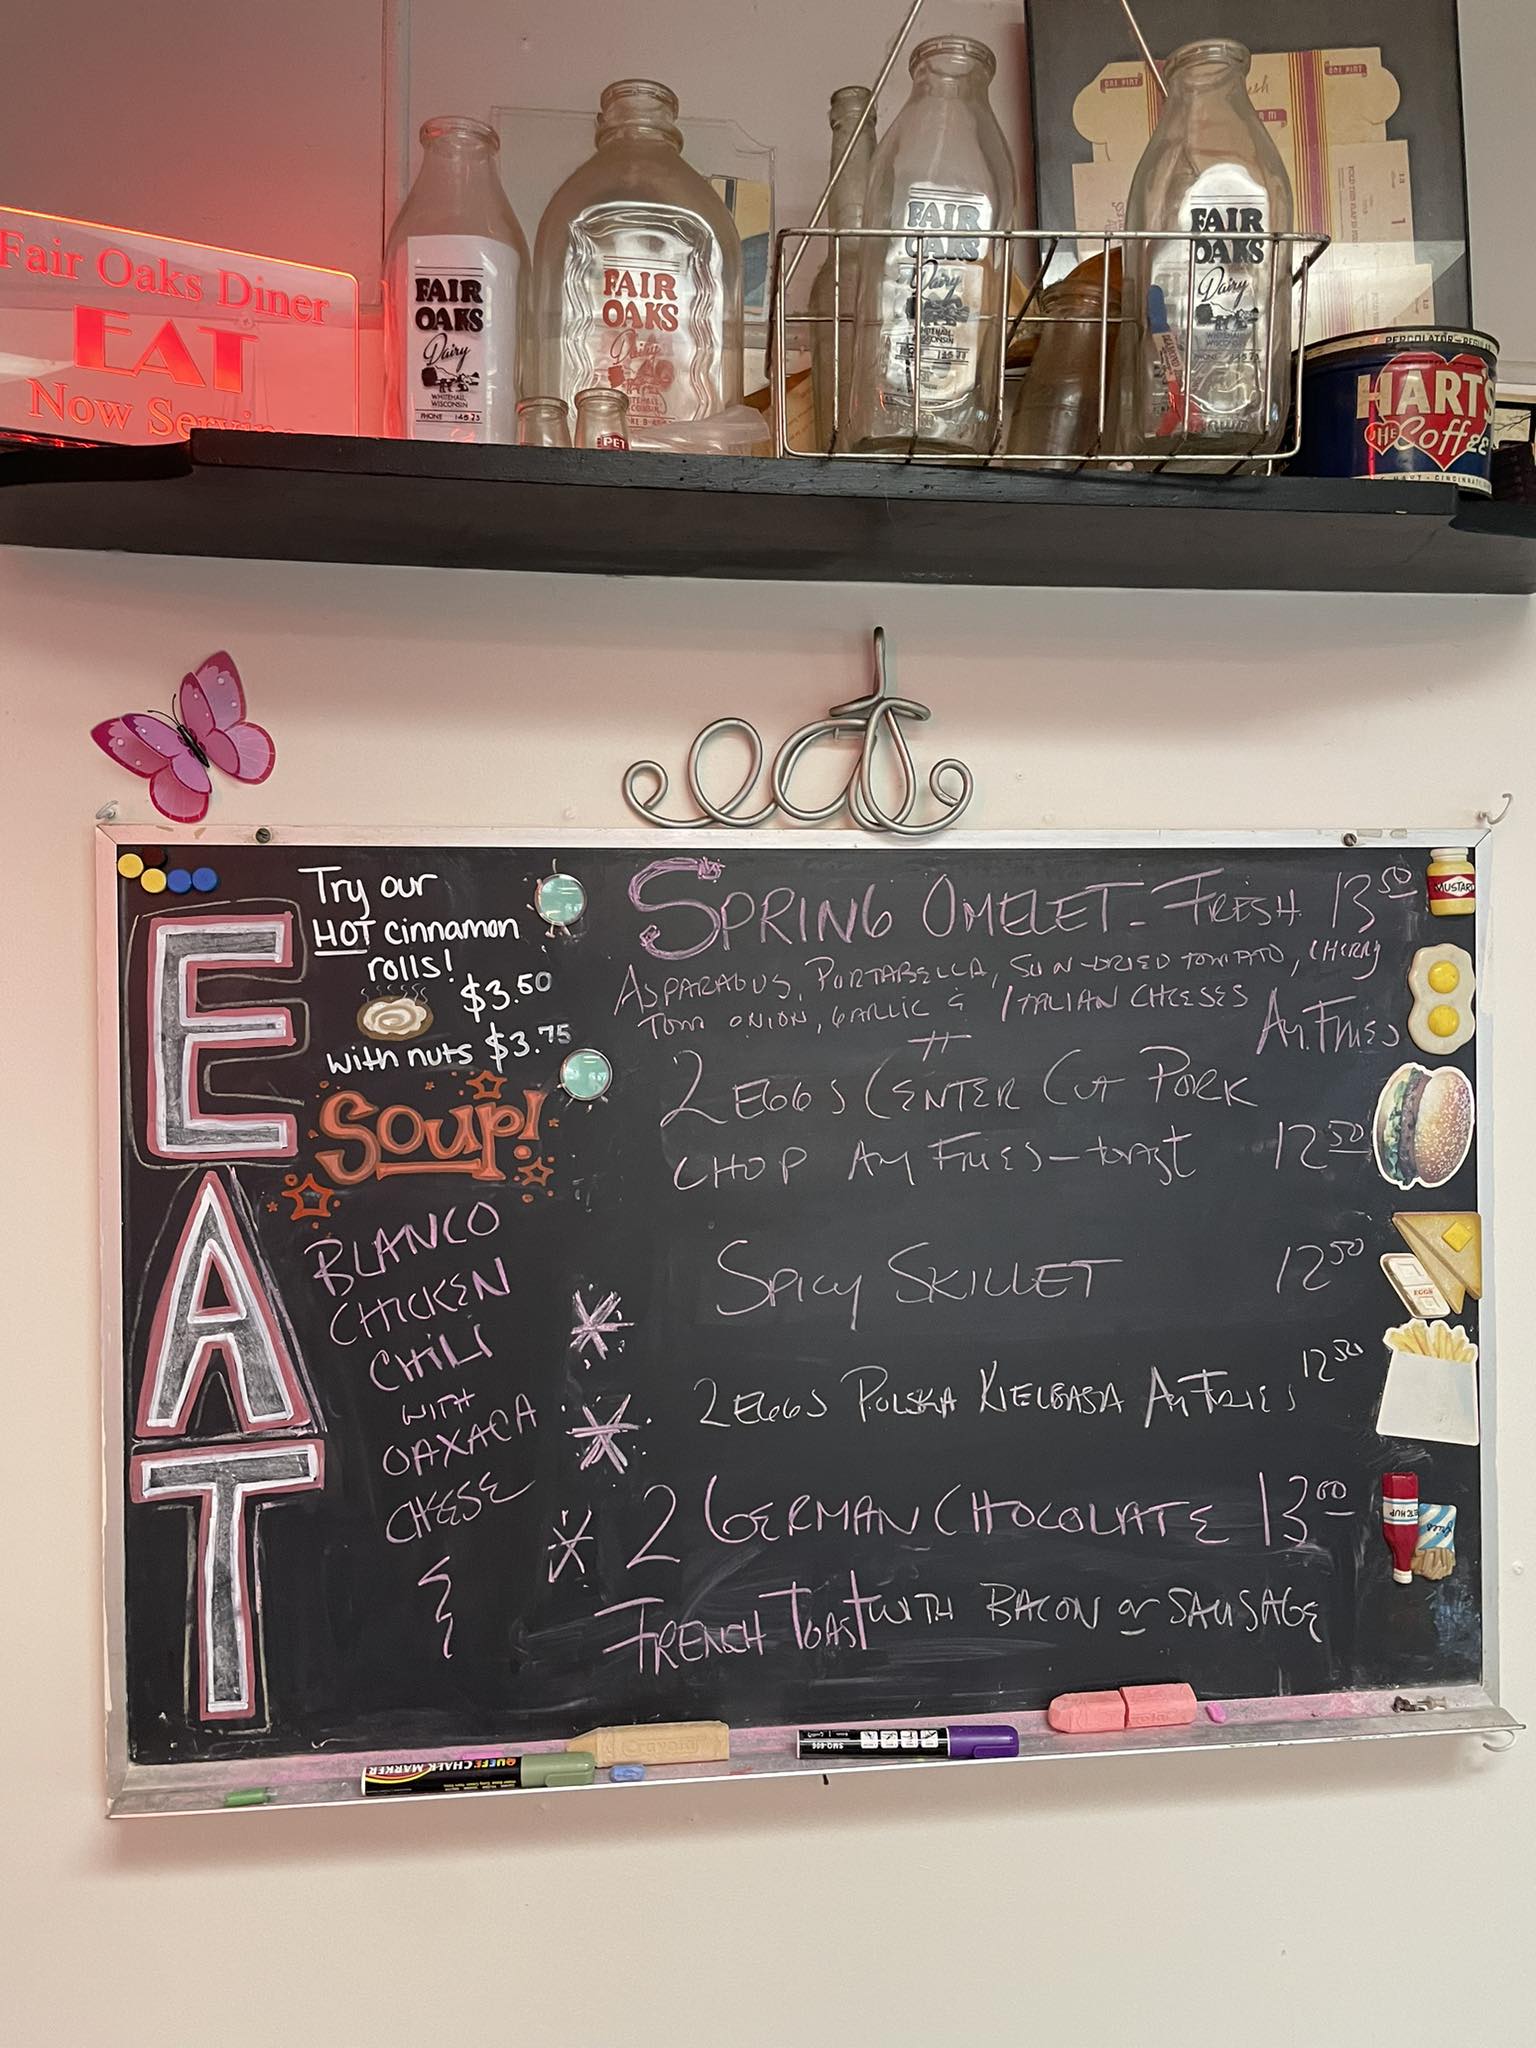 Fair Oaks Diner
EAT
Now Servin
FAIR
OAKS
Dairy
WHITEHALL
WISCONSIN
PHONE 14523
FAIR
OAKS
Dairy
PET
FAIR
OAKS
Dairy
FAIR
OAKS
Dairy
WHITEHALL
WISCONSIN
ONE PINT
ONE PINT
PERCOLATOR-REGUL
HARTS
THE Coffee
HART · CINCINNATI
eat
EAT
Try our
HOT cinnamon
rolls!
$3.50
with nuts $3.75
Soup!
BLANCO
CHICKEN
CHILI
WITH
OAXACA
CHEESE
SPRING OMELET - FRESH 13 50
ASPARAGUS, PORTABELLA, SUN-DRIED TOMATO, CHERRY
TOM ONION, GARLIC & ITALIAN CHEESES
AM. FRIES
2 EGGS CENTER CUT PORK
CHOP AM FRIES - toast 12 50
SPICY SKILLET 12 50
2 EGGS POLSKA KIELBASA AM FRIES 12 50
2 GERMAN CHOCOLATE 13 00
FRENCH TOAST WITH BACON or SAUSAGE
MUSTARD
EGGS
KETCHUP
fries
CHALK MARKER